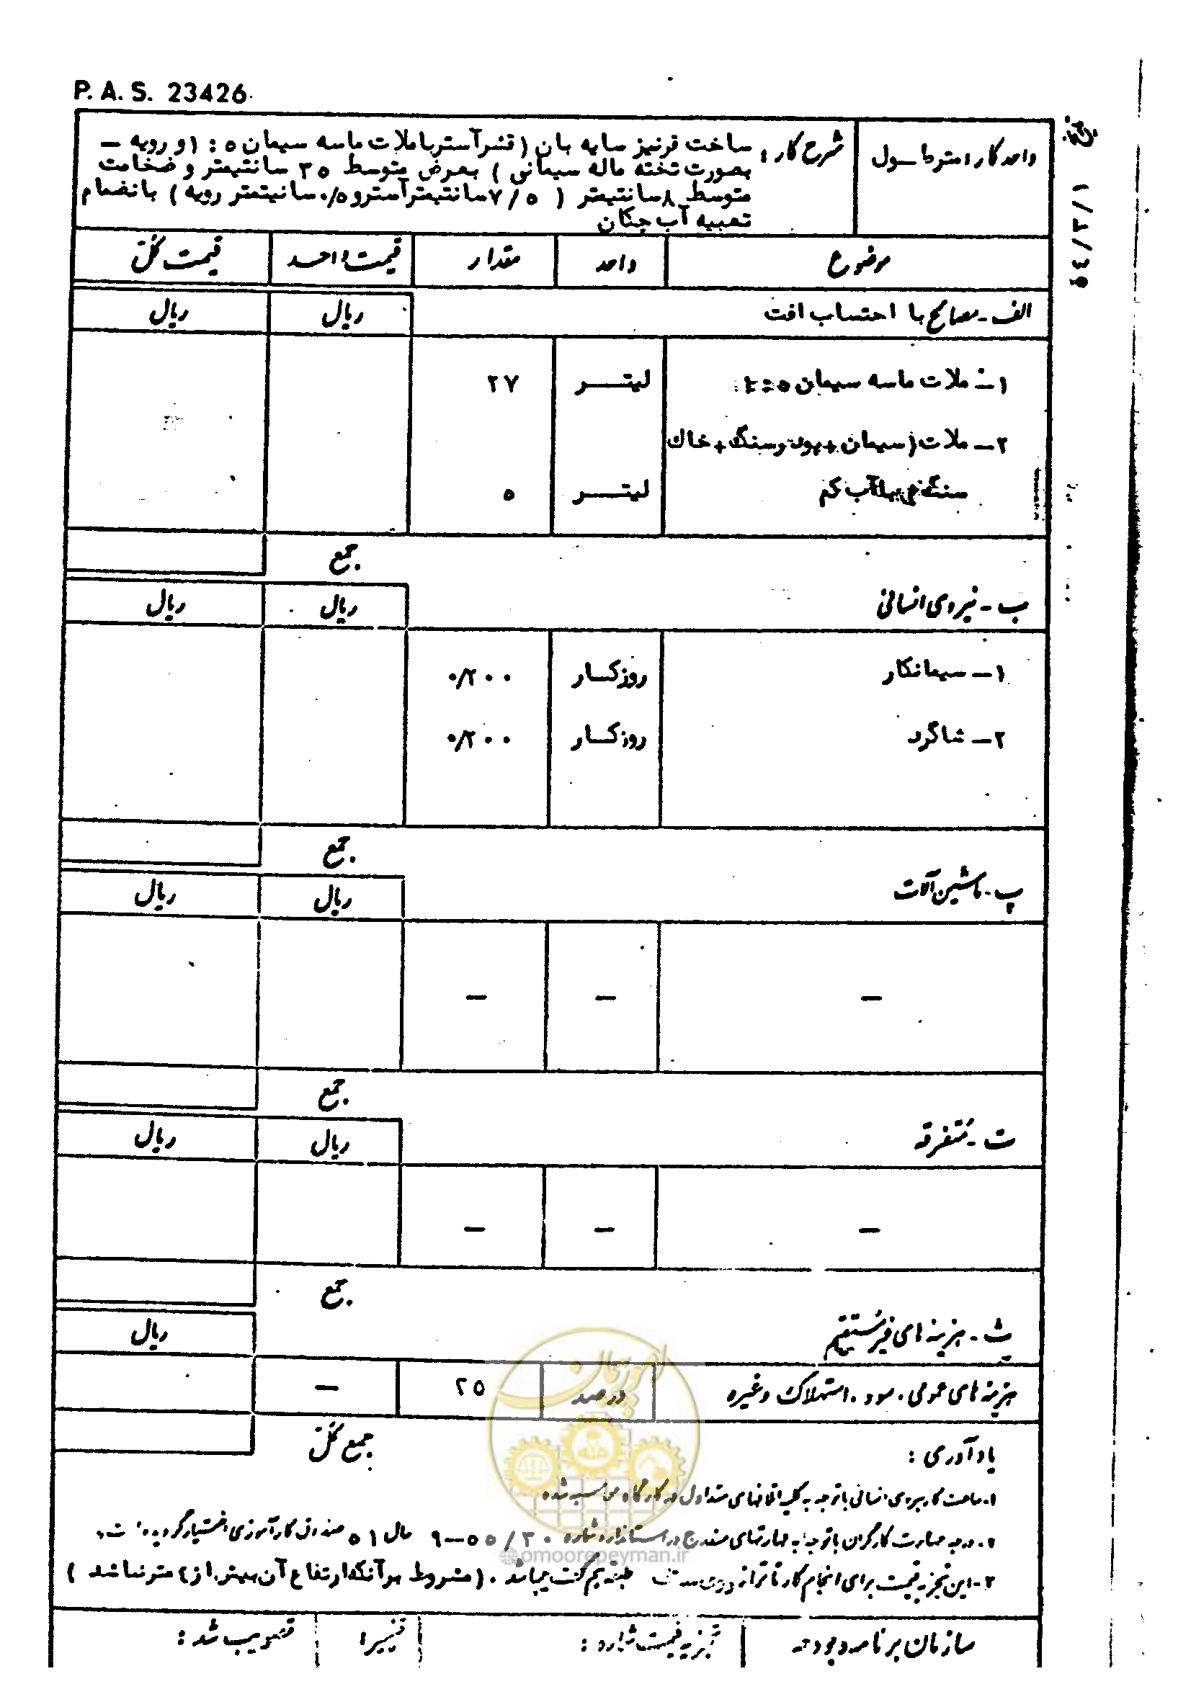 P. A. S. 23426
واحد کار : مترطول
شرح کار : ساخت قرنیز سایه بان ( قشرآستربا ملات ماسه سیمان ۵ : ۱ و رویه –
بصورت تخته ماله سیمانی ) بعرض متوسط ۳۵ سانتیمتر و ضخامت
متوسط ۸ سانتیمتر ( ۷/۵ سانتیمترآسترو ۰/۵ سانتیمتر رویه ) بانضمام
تعبیه آب چکان
موضوع واحد مقدار قیمت واحد قیمت کل
الف - مصالح با احتساب افت ریال ریال
۱ – ملات ماسه سیمان ۱:۵ لیتر ۲۷
۲ – ملات ( سیمان + پودر سنگ + خاك
سنگ ) با آب کم لیتر ۵
جمع
ب - نیروی انسانی ریال ریال
۱ – سیمانکار روزکار ۰/۲۰۰
۲ – شاگرد روزکار ۰/۲۰۰
جمع
پ - ماشین آلات ریال ریال
– – –
جمع
ت - متفرقه ریال ریال
– – –
جمع
ث - هزینه های غیرمستقیم ریال
هزینه های عمومی ، سود ، استهلاک وغیره درصد ۲۵ –
جمع کل
یادآوری :
۱- ساعت کار نیروی انسانی باتوجه به کلیه اتلافهای متداول در کارگاه محاسبه شده
۲- درجه مهارت کارگران باتوجه به مهارتهای مندرج در استاندارد شماره ۳۰ / ۵۵ – ۹ سال ۵۱ صندوق کارآموزی اختیار گردیده است.
۳- این تجزیه قیمت برای انجام کار تا تراز روی سقف طبقه همکف میباشد . ( مشروط برآنکه ارتفاع آن بیشتر از ٤ متر نباشد )
@omoorepeyman.ir
سازمان برنامه و بودجه
تجزیه قیمت شماره :
تغییر :
تصویب شد :
امور پیمان